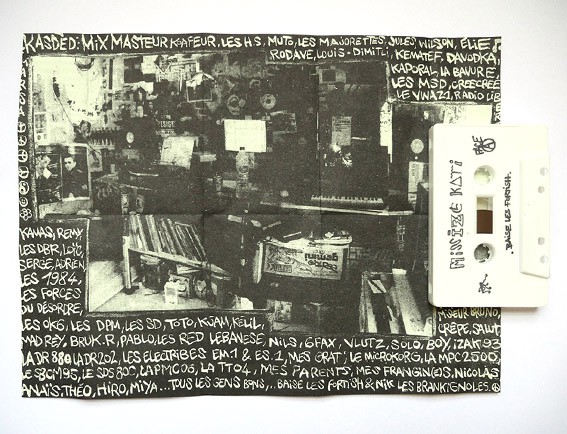 KASDED: MIX MASTEUR KOAFEUR, LES H.S, MUTO, LES MAJORETTES, JULES, WILSON, ELIE
RODAVE, LOUIS-DIMITLI, KEMATEF, DAVODKA,
KAPORAL, LA BAVURE,
LES MSD, CREECREE
LE VINAZ1, RADIO LIB
KAWAS, REMY,
LES DBR, LOÏC,
SERGE, ADRIEN,
LES 1984,
LES FORCES
DU DÉSORDRE,
MSIEUR BRUNO,
CRÊPE, SALUT,
LES OKG, LES DPM, LES SD, TOTO, KÜAM, KELIL,
MAD REY, BRUK.R, PABLO, LES RED LEBANESE, NILS, GFAX, VLUTZ, SOLO, BOY, IZAK 93
LA DR 880, LA DR 202, LES ELECTRIBES EM.1 & ES.1, MES GRAT', LE MICROKORG, LA MPC 2500,
LES BCM95, LE SDS 800, LA PMC06, LA TT04, MES PARENTS, MES FRANGIN(E)S, NICOLAS
ANAÏS, THÉO, HIRO, MIYA... TOUS LES SENS BONS... BAISE LES FORTISH & NIK LES BRANKIGNOLES.
MISÏZE KATI
FACE A
BAISE LES FORTISH.